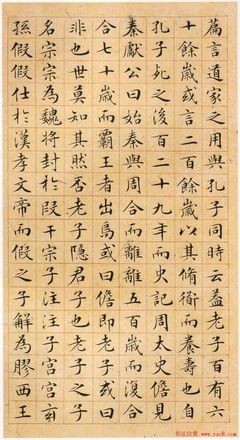 篇言道家之用與孔子同時云蓋老子百有六
十餘歲或言二百餘歲以其脩衜而養壽也自
孔子死之後百二十九年而史記周太史儋見
秦獻公曰始秦與周合而離離五百歲而復合
合七十歲而霸王者出焉或曰儋即老子或曰
非也世莫知其然否老子隱君子也老子之子
名宗宗為魏將封於段干宗子注注子宮宮玄
孫假假仕於漢孝文帝而假之子解為膠西王
书法欣赏
www.yac8.com